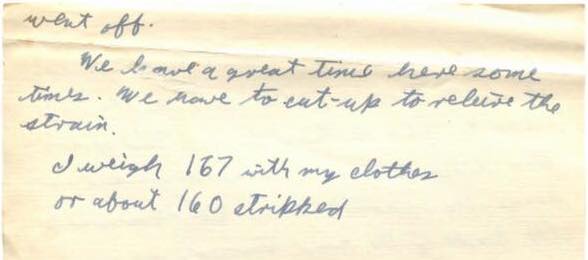 went off.
We have a great time here some
times. We have to cut-up to releive the
strain.
I weigh 167 with my clothes
or about 160 stripped